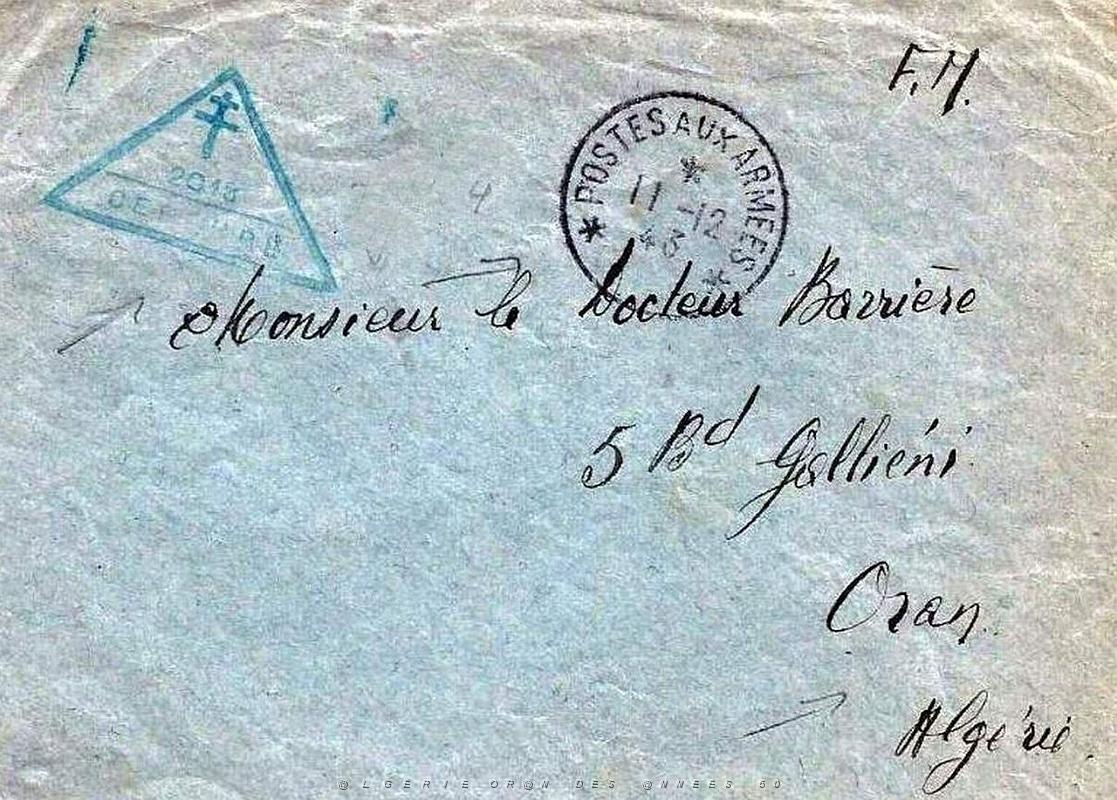 F.M.
POSTES AUX ARMEES
11 -12
43
2018
Monsieur le Docteur Barrière
5 Bd Galliéni
Oran
Algérie.
@LGERIE OR@N DES @NNEES 50